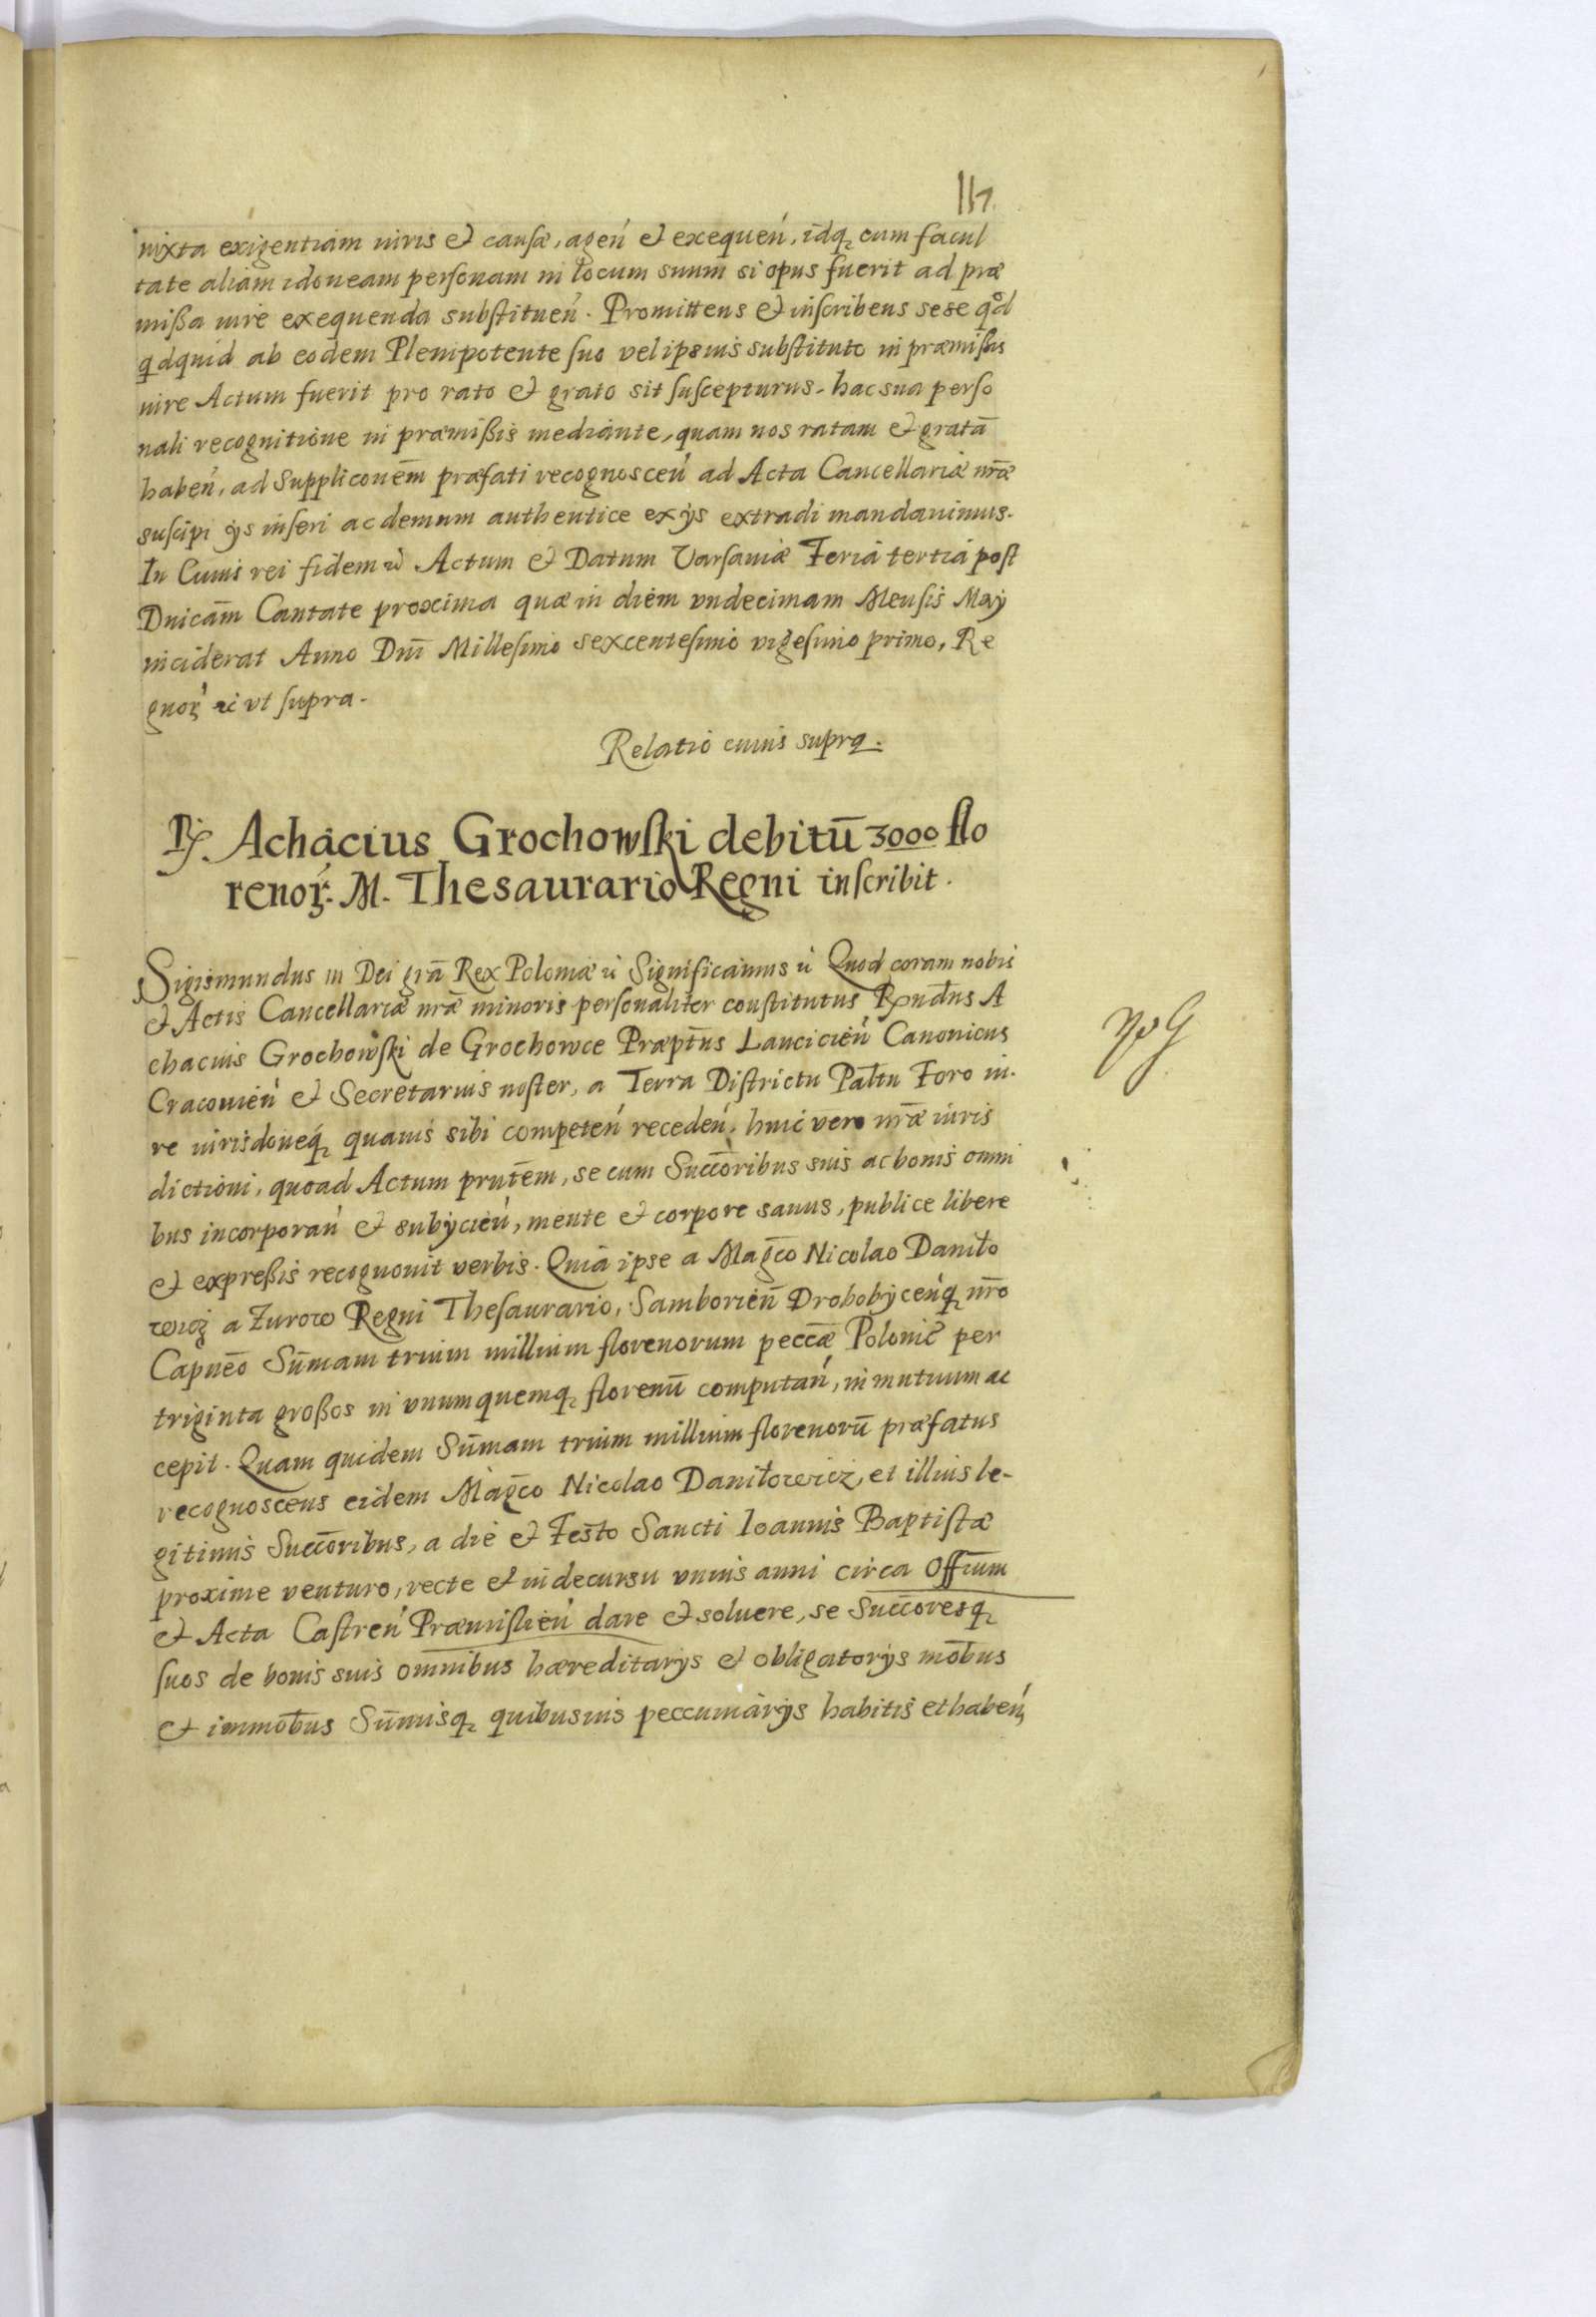 117.
iuxta exigentiam iuris et causæ, ageń et exequeń, idq. cum facul
tate aliam idoneam personam in locum suum si opus fuerit ad præ
missa iure exequenda substitueń. Promittens et inscribens sese qd
qdquid ab eodem Plenipotente suo vel ipsius substituto in præmissis
iure Actum fuerit pro rato et grato sit suscepturus. hac sua perso
nali recognitione in præmissis mediante, quam nos ratam et gratā
habeń, ad Supplicoēm præfati recognosceń ad Acta Cancellariæ nrǣ
suscipi ijs inseri ac demum authentice ex ijs extradi mandauimus.
In Cuius rei fidem &c Actum et Datum Varsauiæ Feria tertia post
Dnicām Cantate proxima quæ in diem vndecimam Mensis Maÿ
inciderat Anno Dni Millesimo sexcentesimo vigesimo primo, Re
gnoꝝ &c vt supra.
Relatio cuius supra.
R. Achacius Grochowski debitū 3000 flo
renoꝝ. M. Thesaurario Regni inscribit.
Sigismundus III Dei grā Rex Poloniæ &c Significamus &c Quod coram nobis
et Actis Cancellariæ nrǣ minoris personaliter constitutus Rndus A
chacius Grochowski de Grochowce Præptus Lancicień Canonicus
Cracouień et Secretarius noster, a Terra Districtu Paltu Foro iu.
re iurisdoneq. quauis sibi competeń recedeń, huic vero nrǣ iuris
dictioni, quoad Actum prntēm, se cum Succōribus suis ac bonis omni
bus incorporań et subÿcień, mente et corpore sanus, publice libere
et expressis recognouit verbis. Quia ipse a Magco Nicolao Daniło
wicz a Zurow Regni Thesaurario, Samborień Drohobyceńq. nro
Capneo Sum̄am trium millium florenorum peccæ Polonić per
triginta grossos in vnumquemq. florenū computań, in mutuum ac
cepit. Quam quidem Sum̄am trium millium florenorū præfatus
recognoscens eidem Magco Nicolao Daniłowicz, et illius le-
gitimis Succōribus, a die et Festo Sancti Ioannis Baptistæ
proxime venturo, recte et in decursu vnius anni circa Offium
et Acta Castreń Præmislień dare et soluere, se Succōresq.
suos de bonis suis omnibus hæreditarÿs et obligatorÿs mobus
et immobus Sum̄isq. quibusuis peccuniarÿs habitis et habeń,